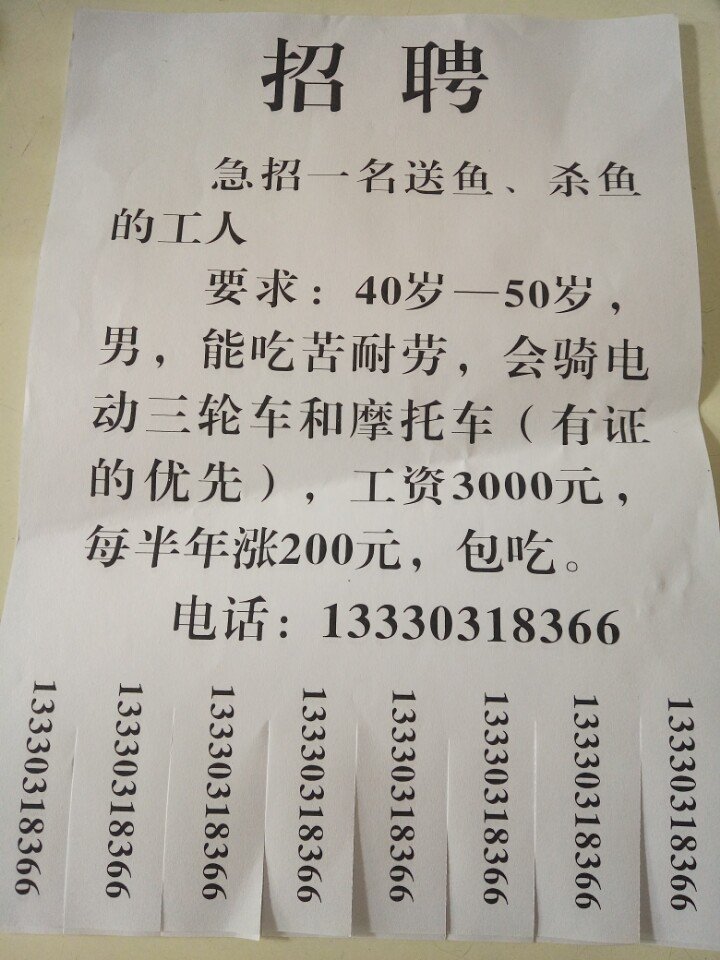 招聘
急招一名送鱼、杀鱼
的工人
要求：40岁—50岁，
男，能吃苦耐劳，会骑电
动三轮车和摩托车（有证
的优先），工资3000元，
每半年涨200元，包吃。
电话：13330318366
13330318366
13330318366
13330318366
13330318366
13330318366
13330318366
13330318366
13330318366